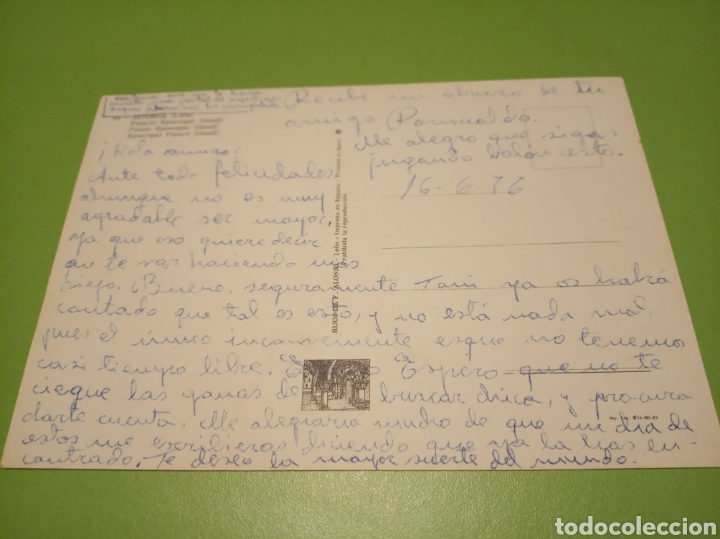 ASTORGA (León)
Palacio Episcopal (Gaudí)
Palais Episcopal (Gaudí)
Episcopal Palace (Gaudí)
¡Hola amigo!
Ante todo felicidades
aunque no es muy
agradable ser mayor,
ya que eso quiere decir
que te vas haciendo más
viejo. Bueno, seguramente Toni ya os habrá
contado que tal es esto, y no está nada mal,
pues el único inconveniente es que no tenemos
casi tiempo libre. Espero que no te
ciegue las ganas de buscar chica, y procura
darte cuenta. Me alegraria mucho de que un dia de
estos me escribieras diciendo que ya la has en-
contrado. Te deseo la mayor suerte del mundo.
Recibe un abrazo de tu
amigo Romualdo.
Me alegro que sigas
jugando baloncesto.
16-6-76
HIJOS DE F. ALONSO - León - Impreso en España
Prohibida la reproducción
todocoleccion